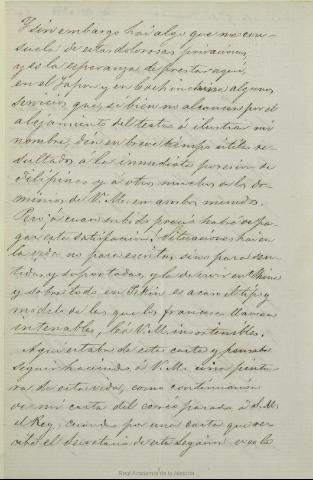 Y sin embargo hai algo que me con-
suela de estas dolorosas privaciones,
y es la esperanza de prestar aquí,
en el Japon y en Cochinchina algunos
servicios que, si bien no alcancen por el
alejamiento del teatro á ilustrar mi
nombre, den en breve tiempo útiles re-
sultados a la inmediata posesion de
Filipinas y á otros muchos de los do-
minios de V.M. en ambos mundos.
Pero ¡á cuan subido precio habré de pa-
gar esta satisfaccion! Situaciones hai en
la vida no para escritas, sino para sen-
tidas y soportadas, y la de vivir en China
y sobre todo en Pekin es acaso el tipo y
modelo de las que los franceses llaman
intenables, léa V.M. insostenibles.
Aquí estaba de esta carta y pensaba
seguir haciendo á V.M. una pintu-
ra de esta vida, como continuacion
de mi carta del correo pasado á S.M.
el Rey, cuando por una carta que re-
cibió el Secretario de esta Legacion
Real Academia de la Historia